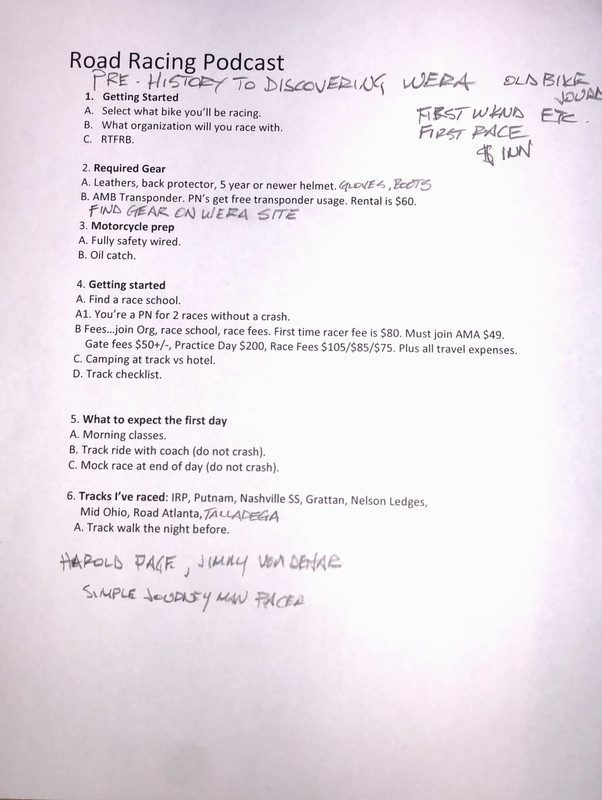 Road Racing Podcast
PRE-HISTORY TO DISCOVERING WERA OLD BIKE
1. Getting Started
A. Select what bike you'll be racing.
FIRST WKND ETC.
B. What organization will you race with.
FIRST RACE
C. RTFRB.
$ INN
2. Required Gear
A. Leathers, back protector, 5 year or newer helmet. GLOVES, BOOTS
B. AMB Transponder. PN's get free transponder usage. Rental is $60.
FIND GEAR ON WERA SITE
3. Motorcycle prep
A. Fully safety wired.
B. Oil catch.
4. Getting started
A. Find a race school.
A1. You're a PN for 2 races without a crash.
B Fees...join Org, race school, race fees. First time racer fee is $80. Must join AMA $49.
Gate fees $50+/-, Practice Day $200, Race Fees $105/$85/$75. Plus all travel expenses.
C. Camping at track vs hotel.
D. Track checklist.
5. What to expect the first day
A. Morning classes.
B. Track ride with coach (do not crash).
C. Mock race at end of day (do not crash).
6. Tracks I've raced: IRP, Putnam, Nashville SS, Grattan, Nelson Ledges,
Mid Ohio, Road Atlanta, TALLADEGA
A. Track walk the night before.
HAROLD PAGE, JIMMY
SIMPLE JOURNEY MAN RACER